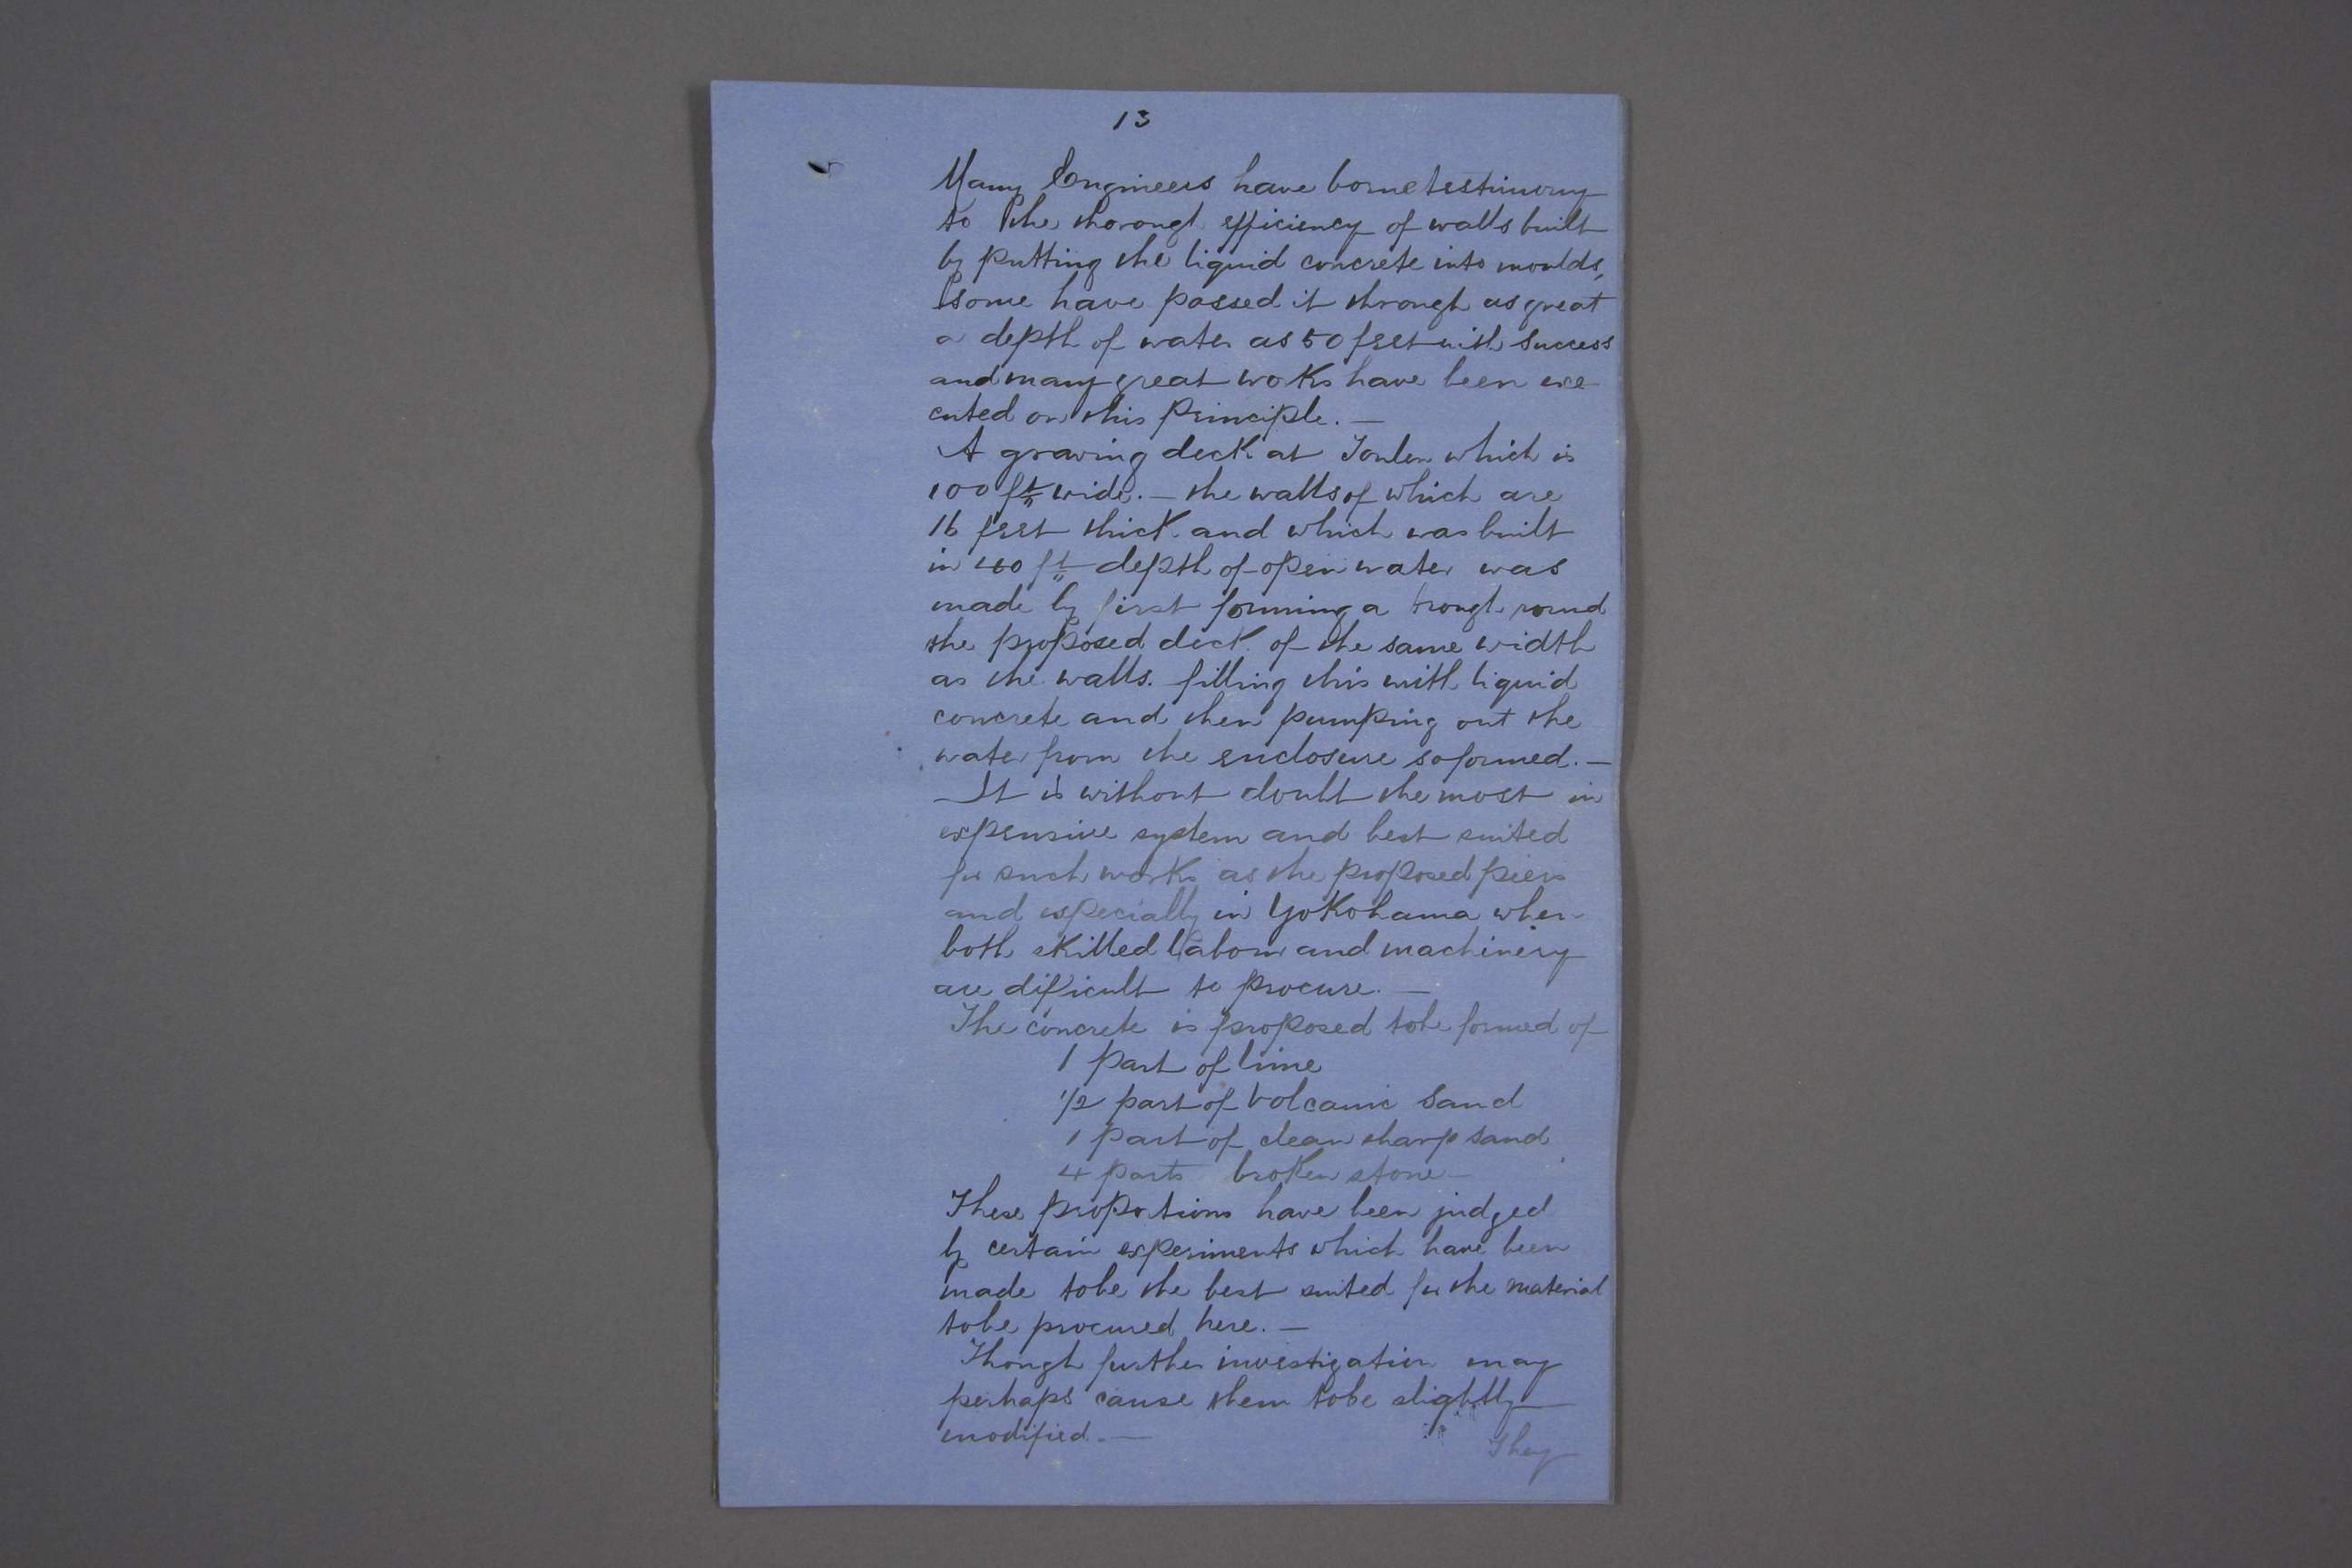 13
Many Engineers have borne testimony
to the thorough efficiency of walls built
by putting the liquid concrete into moulds,
some have passed it through as great
a depth of water as 50 feet with success
and many great works have been exe
cuted on this principle. —
A graving dock at Toulon which is
100 ft wide. — the walls of which are
16 feet thick and which was built
in 40 ft depth of open water was
made by first forming a trough round
the proposed dock of the same width
as the walls. filling this with liquid
concrete and then pumping out the
water from the enclosure so formed. —
It is without doubt the most in
expensive system and best suited
for such works as the proposed piers
and especially in Yokohama wher
both skilled labour and machinery
are dificult to procure. —
The concrete is proposed to be formed of
1 part of lime
1/2 part of Volcanic Sand
1 part of clean sharp sand
4 parts broken stone —
These proportions have been judged
by certain experiments which have been
made to be the best suited for the material
to be procured here. —
Though further investigation may
perhaps cause them to be slightly
modified. —
They